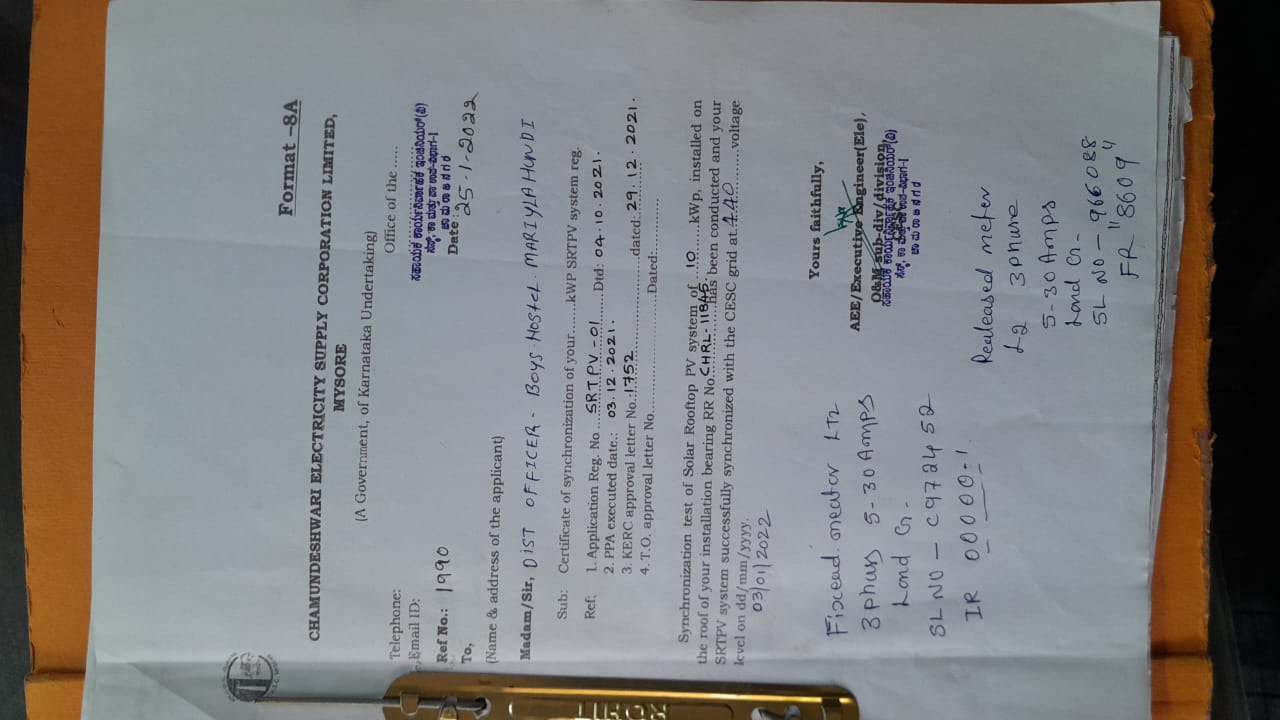 Format –8A
CHAMUNDESHWARI ELECTRICITY SUPPLY CORPORATION LIMITED,
MYSORE
(A Government, of Karnataka Undertaking)
Telephone: Office of the ......
Email ID:
ಸಹಾಯಕ ಕಾರ್ಯನಿರ್ವಾಹಕ ಇಂಜಿನಿಯರ್(ವಿ)
ಚಾಮರಾಜನಗರ
Ref No.: 1990 Date: 25-1-2022
To,
(Name & address of the applicant)
Madam/Sir, DIST OFFICER - BOYS HOSTEL MARIYLAHUNDI
Sub: Certificate of synchronization of your.......kWP SRTPV system reg.
Ref: 1. Application Reg. No ....SRTPV-01......Dtd: 04.10.2021.
2. PPA executed date.: 03.12.2021.
3. KERC approval letter No.:1752..................dated:29.12.2021.
4. T.O. approval letter No........................Dated:..................
Synchronization test of Solar Rooftop PV system of ....10......kWp, installed on
the roof of your installation bearing RR No.CHRL-11845.has been conducted and your
SRTPV system successfully synchronized with the CESC grid at.440........voltage
level on dd/mm/yyyy.
03/01/2022
Yours faithfully,
AEE/Executive Engineer(Ele),
O&M sub-div/division
ಸಹಾಯಕ ಕಾರ್ಯನಿರ್ವಾಹಕ ಇಂಜಿನಿಯರ್(ವಿ)
ಚಾಮರಾಜನಗರ
Fixead meator LT2
3 phays 5-30 AMPS
Land Gr.
SL NO - C972452
IR 00000.1
Realeased meter
L2 3 phure
5-30 Amps
Land Gr-
SL NO - 966088
FR "8609"
ROHIT